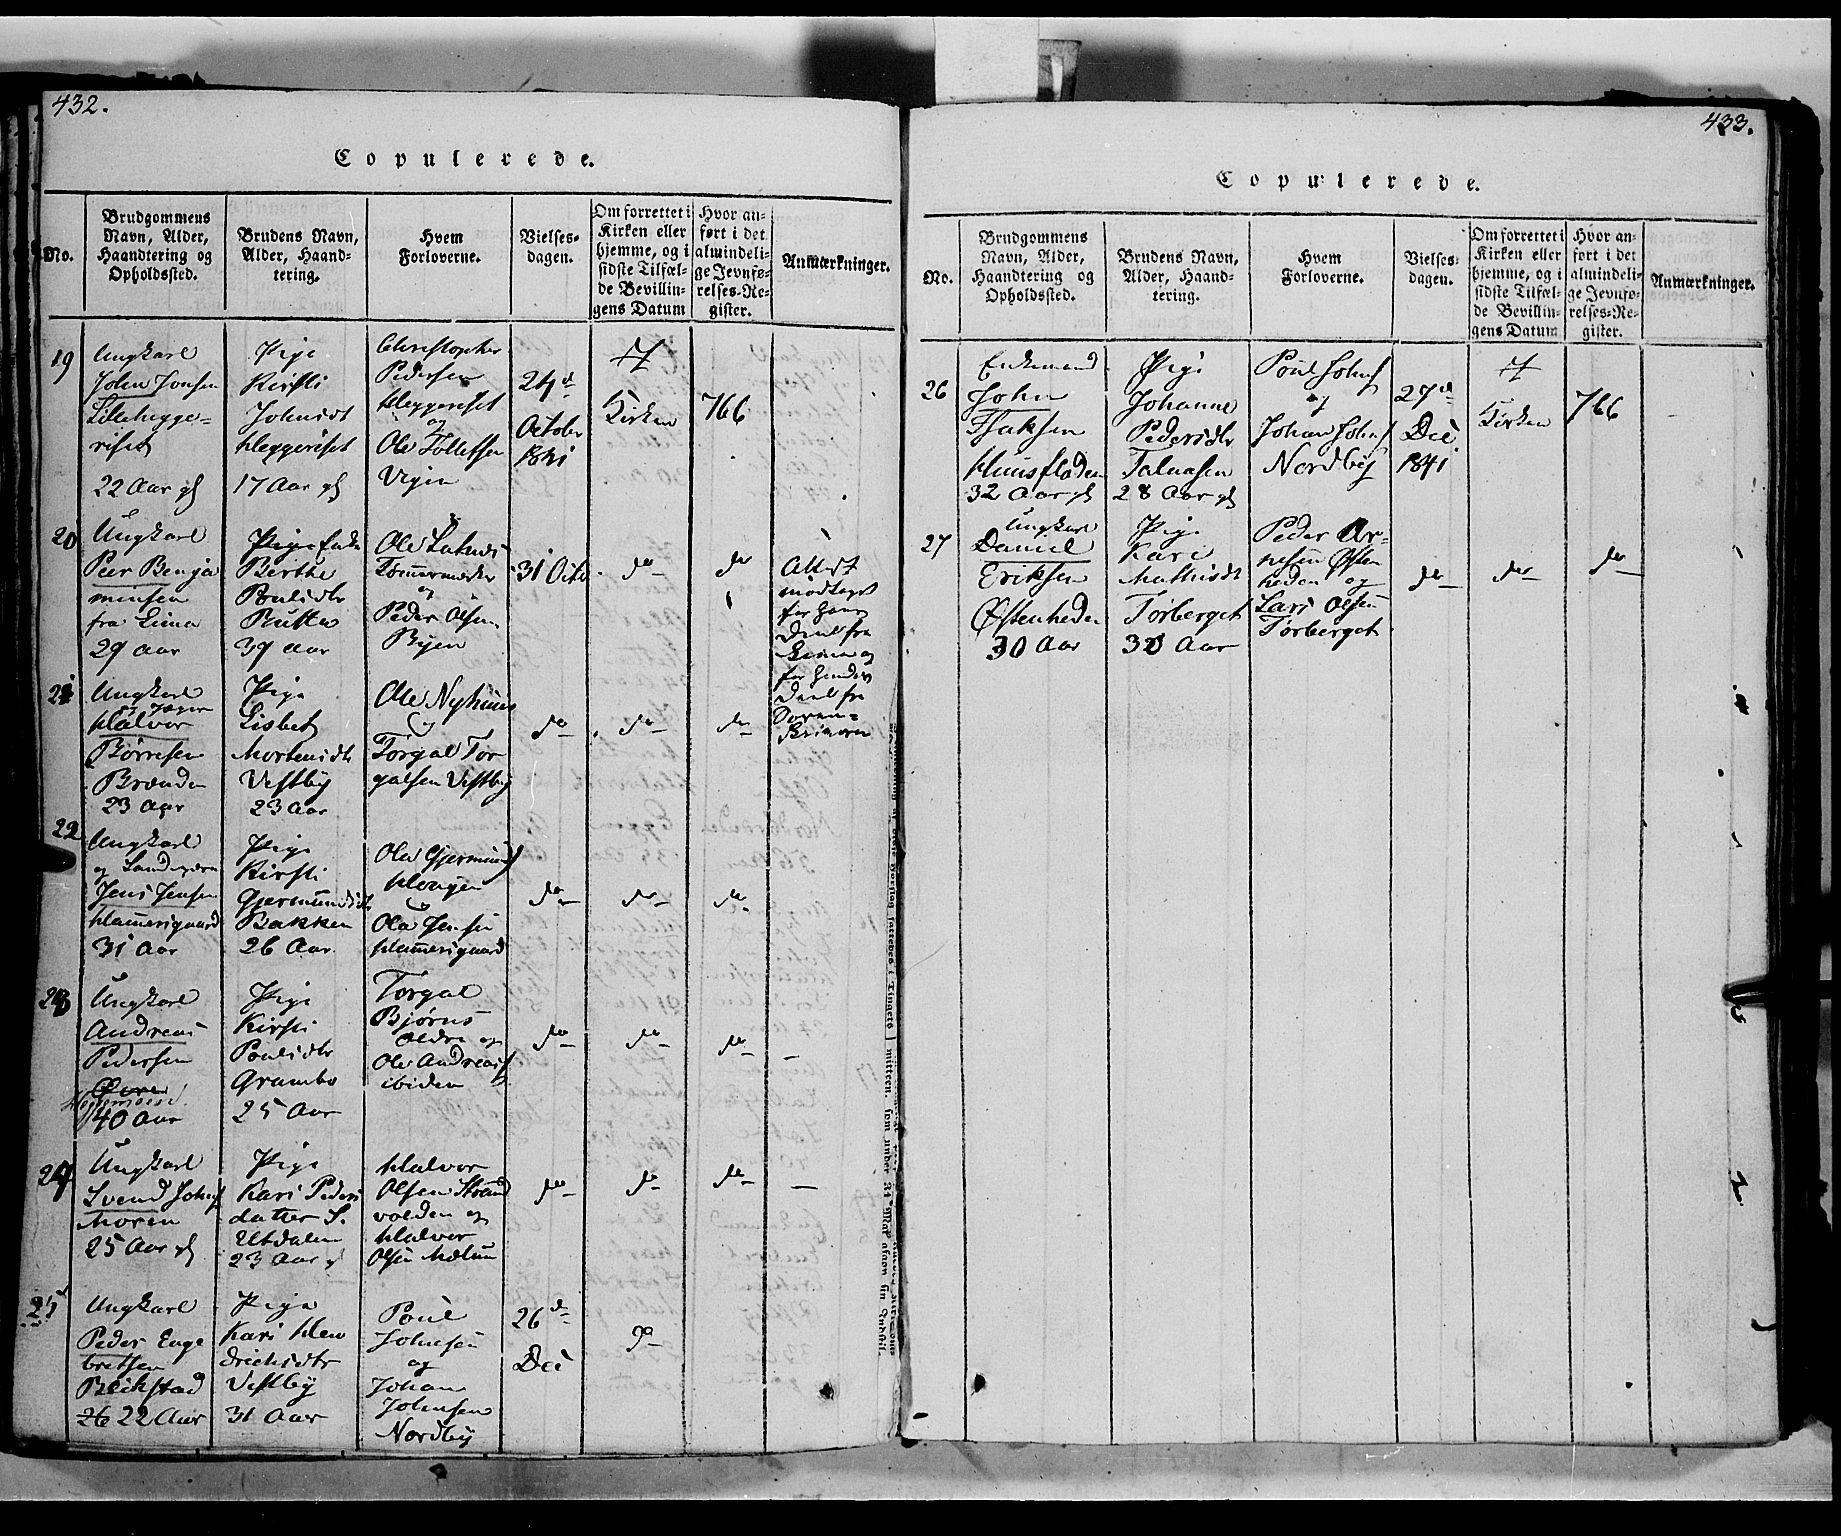 432.
Copulerede.
No.
Brudgommens
Navn, Alder,
Haandtering og
Opholdssted.
Brudens Navn,
Alder, Haand-
tering.
Hvem
Forloverne.
Vielses-
dagen.
Om forrettet i
Kirken eller
hjemme, og i
sidste Tilfæl-
de Bevillin-
gens Datum
Hvor an-
ført i det
almindeli-
ge Jevnfø-
relses-Re-
gister.
Anmærkninger.
19
Ungkarl
John Jonsen
Lillehegge-
riset
22 Aar gl
Pige
Kirsti
Johnsdt
Heggeriset
17 Aar gl
Christopher
Pedersen
Heggeriset
og
Ole Tolletsen
Vigen
24d
October
1841
I
Kirken
766
20
Ungkarl
Peer Benja
minsen
fra Lima
29 Aar
Pige Enke
Berthe
Poulsdtr
Butten
39 Aar
Ole
og
Peder Olsen
Byen
31 Octo
do
do
Attest
modtaget
for hans
Deel fra
Lima og
for hendes
Deel fra
Soren-
21
Ungkarl
og Jæger
Halvor
Børresen
Brænden
23 Aar
Pige
Lisbet
Mortensdtr
Vestby
23 Aar
Ole Nyhuus
og
Torgal Tor
galsen Vestby
do
do
do
22
Ungkarl
og
Jens Jensen
Hammersgaard
31 Aar
Pige
Kirsti
Gjermundsdtr
Bakken
26 Aar
Ole Gjermunds
Haugen
og
Ole Jensen
Hammersgaard
do
do
do
23
Ungkarl
Andreas
Pedersen
40 Aar
Pige
Kirsti
Poulsdtr
Grambo
25 Aar
Torgal
Bjørns
og
Ole Andreas
ibiden
do
do
do
24
Ungkarl
Svend Johns
Moren
25 Aar gl
Pige
Kari Peders
datter S.
Utdalen
23 Aar gl
Halvor
Olsen Strand
volden og
Halvor
Olsen
do
do
do
25
Ungkarl
Peder Enge
bretsen
Bækstad
26 22 Aar
Pige
Kari Hen
drichsdtr
Vestby
31 Aar
Poul
Johnsen
og
Johan
Johnsen
Nordby
26d
Dec
do
433.
Copulerede.
No.
Brudgommens
Navn, Alder,
Haandtering og
Opholdssted.
Brudens Navn,
Alder, Haand-
tering.
Hvem
Forloverne.
Vielses-
dagen.
Om forrettet i
Kirken eller
hjemme, og i
sidste Tilfæl-
de Bevillin-
gens Datum
Hvor an-
ført i det
almindeli-
ge Jevnfø-
relses-Re-
gister.
Anmærkninger.
26
Enkemand
John
Isaksen
Huusfloden
32 Aar gl
Pige
Johanne
Pedersdtr
Talaasen
28 Aar gl
Poul Johns
og
Johan Johns
Nordby
27d
Dec
1841
I
Kirken
766
27
Ungkarl
Daniel
Eriksen
Østenheden
30 Aar
Pige
Kari
Mathisdt
Tørberget
30 Aar
Peder Ar-
nesen Østen
heden og
Lars Olsen
Tørberget
do
do
do